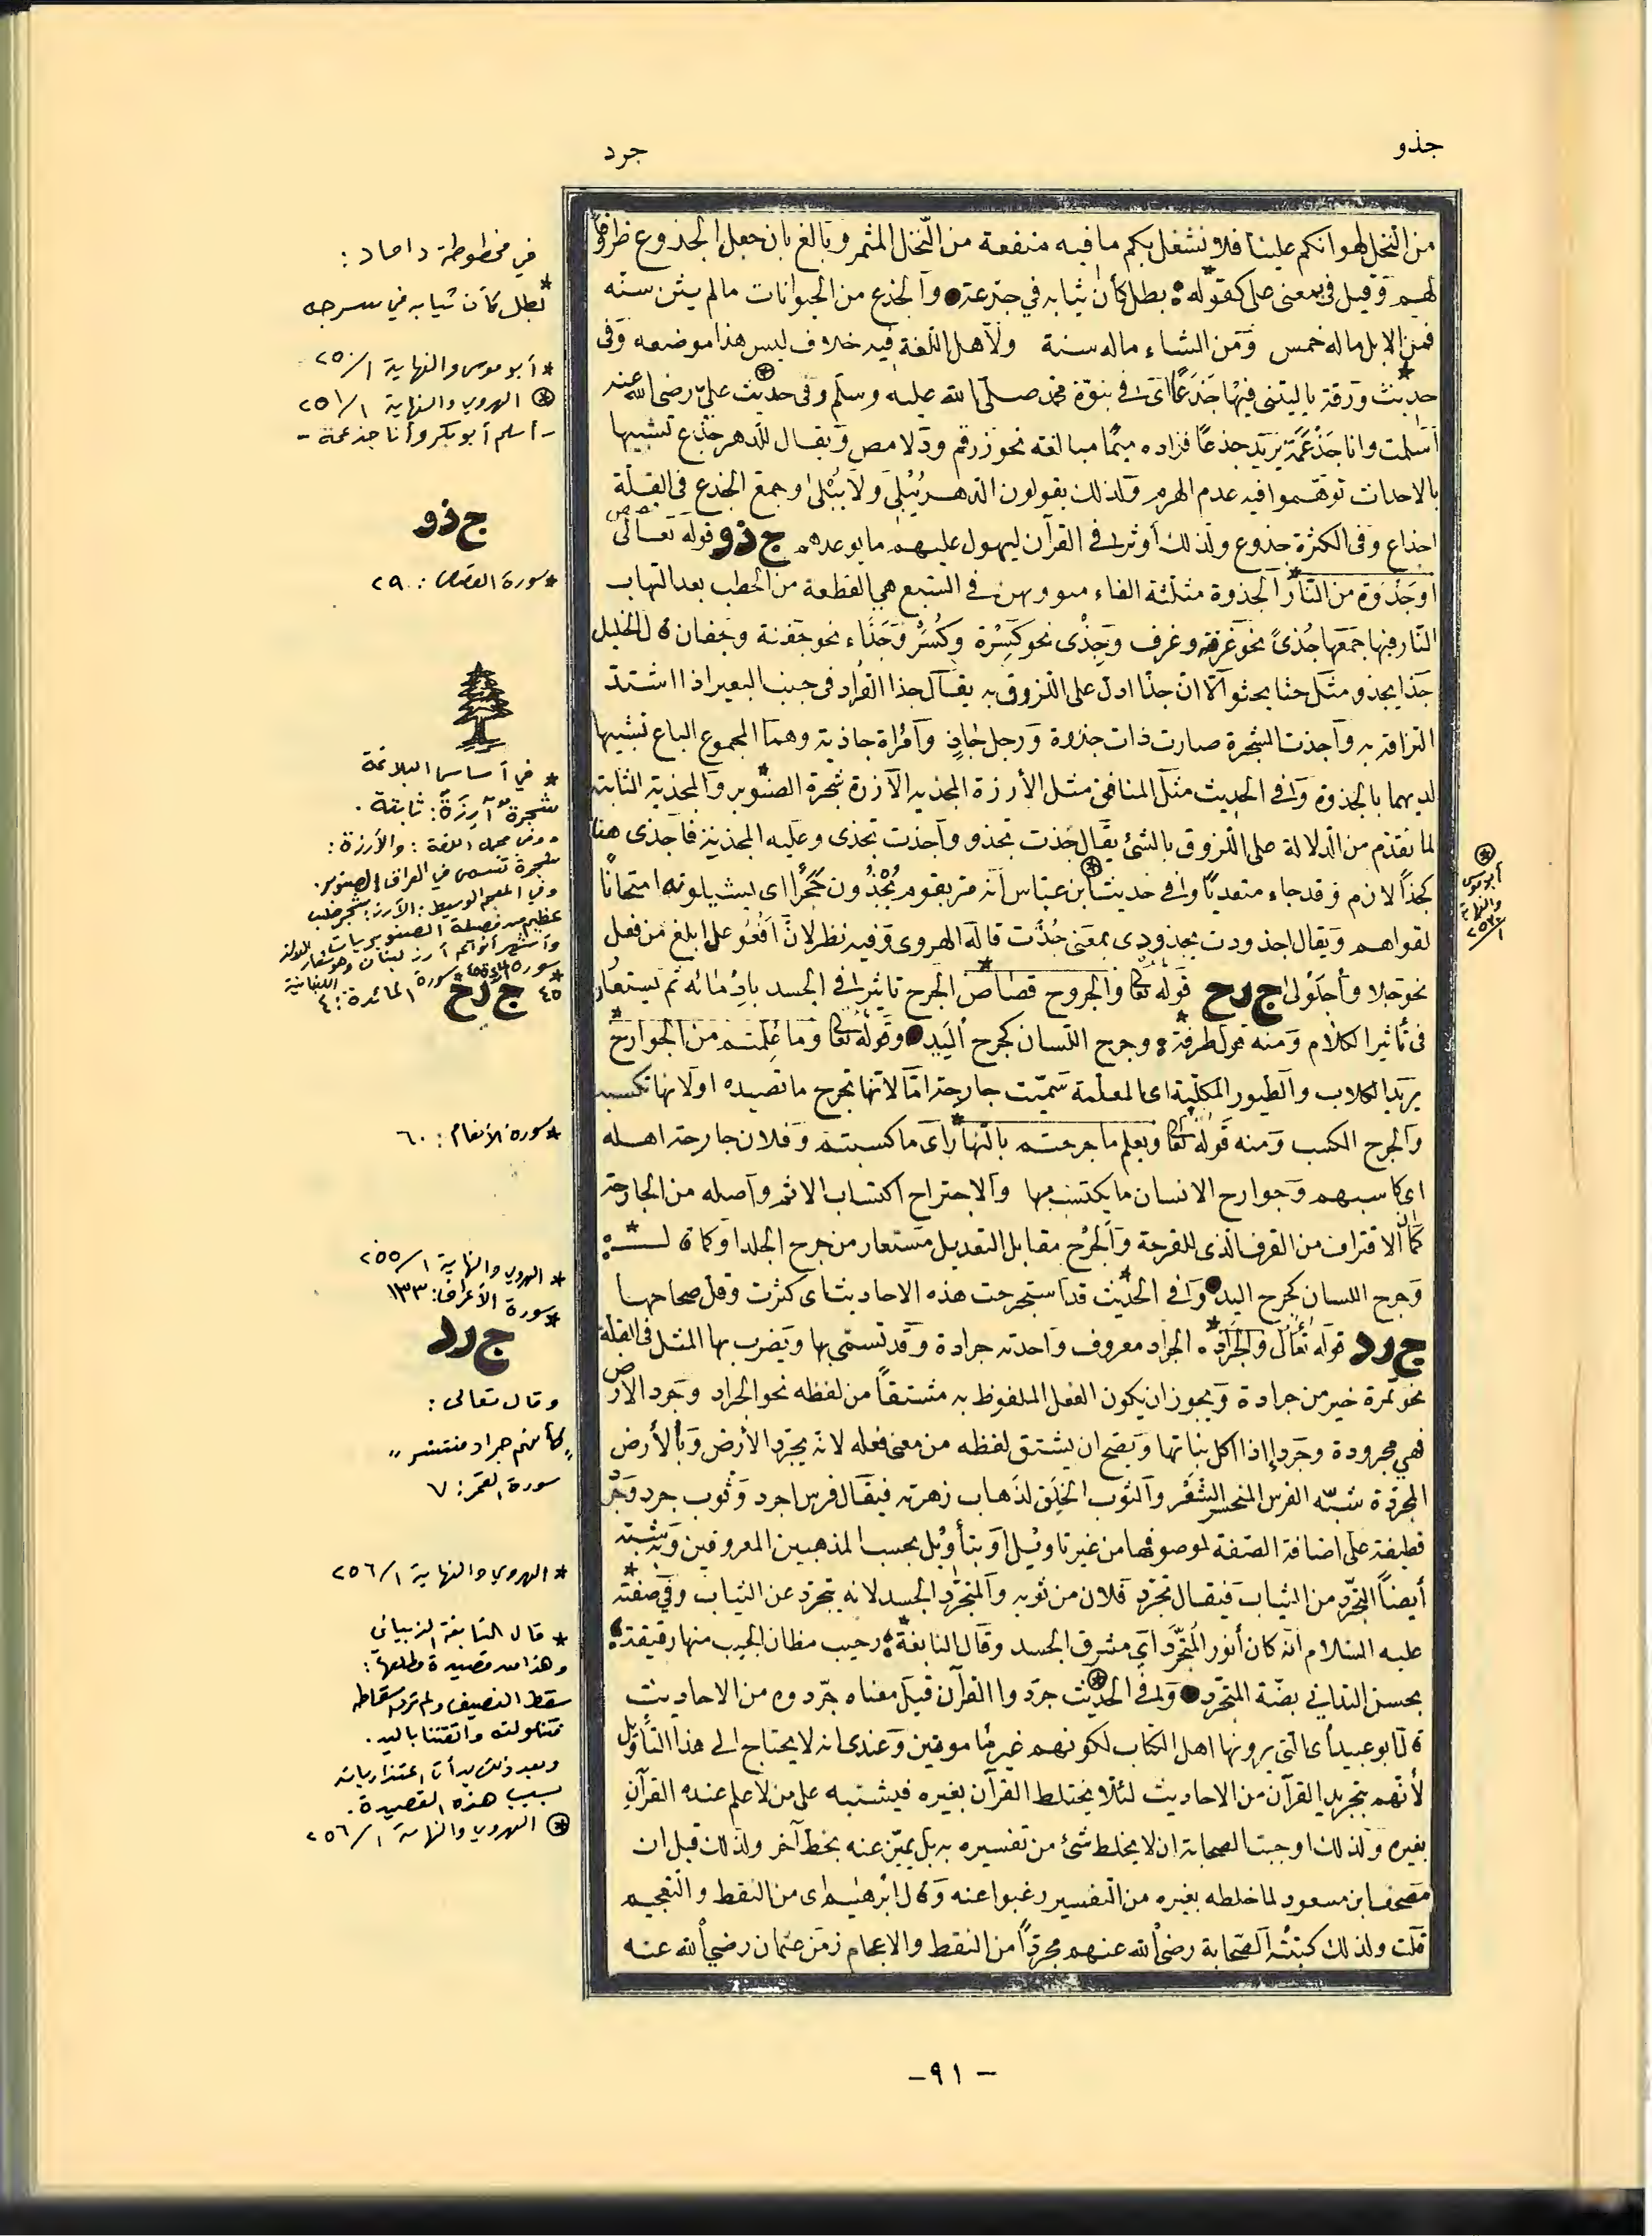 جذو
جرد
من النخل لهوانكم علينا فلا نشغل بكم ما فيه منفعة من النّخل المثمر وبالغ بان جعل الجذوع ظروفًا
لهم وقيل في بمعنى على كقوله بطل كأن ثيابه في جذعة والجذع من الحيوانات ما لم يثن سنه
فمن الابل ما له خمس ومن الشاء ما له سنة ولأهل اللّغة فيه خلاف ليس هذا موضعه وفى
حديث ورقة يا ليتنى فيها جَذَعًا اى فى نبوّة محمد صلى الله عليه وسلم وفى حديث علىّ رضى الله عنه
اسلمت وانا جَذْعَمَة يريد جذعًا فزاده ميمًا مبالغة نحو زرقم ودلامص ويقال للدهر جذع تشبيها
بالاحداث توهّموا فيه عدم الهرم ولذلك يقولون الدهر يُبْلِى ولا يُبْلَى وجمع الجذع فى القلّة
اجذاع وفى الكثرة جذوع ولذلك أوثر فى القرآن ليهول عليهم ما يوعدهم ج ذ و قوله تعالى
او جذوة من النار الجذوة مثلثة الفاء وبهن في السبع هي القطعة من الحطب بعد التهاب
النّار فيها جمعها جُذىً نحو غرفة وغرف وجِذًى نحو كِسْرة وكِسَر وجَذَاء نحو جفنة وجفان قال الخليل
جذا يجذو مثل جثا يجثو الّا انّ جذا ادل على اللّزوق به يقال جذا القراد فى جنب البعير اذا اشتدّ
التزاقه به وأجذت الشجرة صارت ذات جذوة ورجل جاذٍ وامرأة جاذية وهما المجموع الباع تشبيها
لديهما بالجذوة وفى الحديث مثل المنافق مثل الأرزة المجذية الأرزة شجرة الصنوبر والمجذية الثابتة
لما تقدّم من الدلالة على اللّزوق بالشئ يقال جذت تجذو وأجذت تجذى وعليه المجذية فأجذى هنا
كجذا لازم وقد جاء متعديًا وفى حديث ابن عباس أنه مر بقوم يُجْذُون حَجَرًا اى يشيلونه امتحانًا
لقواهم ويقال اجذوذت يجذوذى بمعنى جذت قاله الهروى وفيه نظر لانّ افعوعل ابلغ من فعل
نحو حلا واحلولى ج ر ح قوله تعا والجروح قصاص الجرح تاثير فى الجسد بإدمائه ثم يستعار
فى تأثير الكلام ومنه قول طرفة وجرح اللسان كجرح اليد وقوله تعا وما علّمتم من الجوارح
يريد الكلاب والطيور المكلّبة اى المعلّمة سمّيت جارحة امّا لانّها تجرح ما تصيده او لانها تكسب
والجرح الكسب ومنه قوله تعا ويعلم ما جرحتم بالنّهار أى ما كسبتم وفلان جارحة اهله
اى كاسبهم وجوارح الانسان ما يكتسب بها والاجتراح اكتساب الاثم وأصله من الجارحة
كما أنّ الاقتراف من القرف الذى للقرحة والجرح مقابل التعديل مستعار من جرح الجلد او كما قال
وجرح اللسان كجرح اليد وفى الحديث قد استجرحت هذه الاحاديث اى كثرت وقل صحاحها
ج ر د قوله تعالى والجراد الجراد معروف واحدته جرادة وقد تسمّى بها ويضرب بها المثل فى القلة
نحو تمرة خير من جرادة ويجوز ان يكون الفعل الملفوظ به مشتقاً من لفظه نحو الجراد وجرد الارض
فهي مجرودة وجرد إذا اكل نباتها ويصح ان يشتق لفظه من معنى فعله لانه يجرّد الأرض وبالأرض
المجردة شبّه الفرس المنحسر الشعر والثوب الخَلِق لذهاب زهرته فيقال فرس اجرد وثوب جرد وجرد
قطيفة على اضافة الصّفة لموصوفها من غير تاويل او بتأويل بحسب المذهبين المعروفين ويشبه
أيضاً التجرّد من الثياب فيقال تجرّد فلان من ثوبه والمتجرّد الجسد لانه يتجرّد عن الثياب وفي صفته
عليه السلام أنه كان أنور المتجرَّد أي مشرق الجسد وقال النابغة رحيب مظان الجيب منها رقيقة
بحسن الندانى بضّة المتجرد وفى الحديث جرّدوا القرآن قيل معناه جرّدوه من الاحاديث
قال ابو عبيد أى التى يرويها اهل الكتاب لكونهم غير مأمونين وعندى انه لا يحتاج الى هذا التأويل
لأنهم بتجريد القرآن من الاحاديث لئلا يختلط القرآن بغيره فيشتبه على من لا علم عنده القرآن
بغيره ولذلك اوجبت الصحابة ان لا يخلط شئ من تفسيره به بل يميّز عنه بخط آخر ولذلك قبل ان
مصحف ابن مسعود لما خلطه بغيره من التفسير رغبوا عنه وقال ابرهيم اى من النقط والتعجيم
قلت ولذلك كتبته الصّحابة رضى الله عنهم مجرّداً من النقط والاعجام زمن عثمان رضي الله عنه
في مخطوطة داماد :
* بطل كأن ثيابه في سرحه
* أبو موسى والنهاية ١/٢٥٠
⊛ الهروي والنهاية ١/٢٥١
- أسلم أبو بكر وأنا جذعمة -
ج ذ و
* سورة القصص : ٢٩
* في أساس البلاغة
شجرة آرزة : ثابتة .
وفي مجمل اللغة : والأرزة :
شجرة تسمى في العراق الصنوبر .
وفي المعجم الوسيط : الأرز : شجر صلب
عظيم من فصيلة الصنوبريات
وأشهر أنواعه أرز لبنان وهو شعار للدولة اللبنانية
* سورة المائدة : ٤٥
ج ر ح
* سورة المائدة : ٤
⊛ أبو موسى والنهاية ١/٢٥٣
* سورة الأنعام : ٦٠
* الهروي والنهاية ١/٢٥٥
* سورة الأعراف : ١٣٣
ج ر د
وقال تعالى :
" كأنهم جراد منتشر "
سورة القمر : ٧
* الهروي والنهاية ١/٢٥٦
* قال النابغة الذبياني
وهذا من قصيدة مطلعها :
سقط النصيف ولم ترد إسقاطه
فتناولته واتقتنا باليد .
وبعد ذلك بدأت اعتذارياته
بسبب هذه القصيدة .
⊛ الهروي والنهاية ١/٢٥٦
- ٩١ -